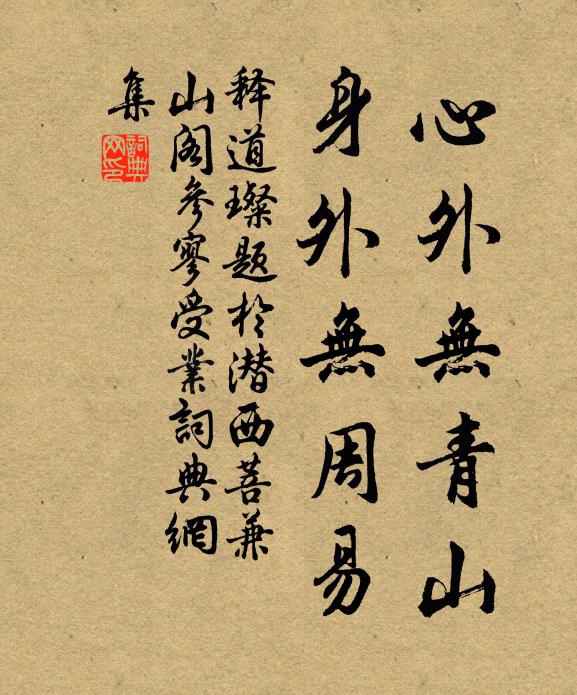 心外無青山
身外無周易
释道璨題於潜西菩兼
山阁參寥受業詞典網
集
詞典
网印